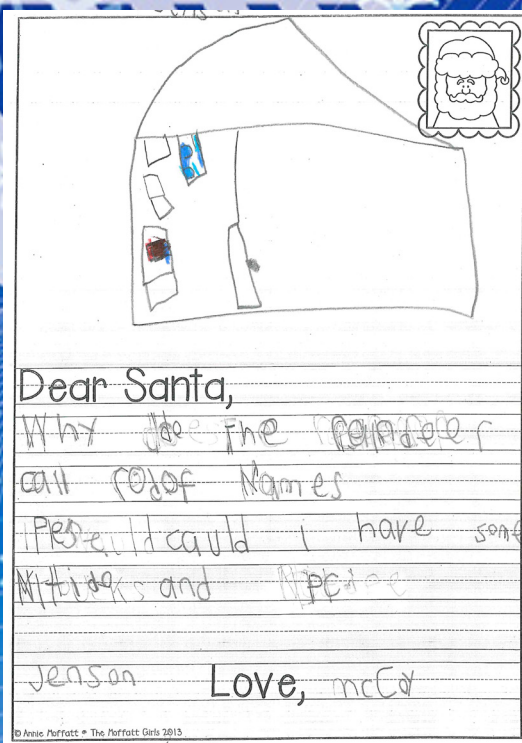 Dear Santa,
Why do the reindeer
call rodof Names
could i have some
and
Jenson Love, mcCoy
© Annie Moffatt @ The Moffatt Girls 2013